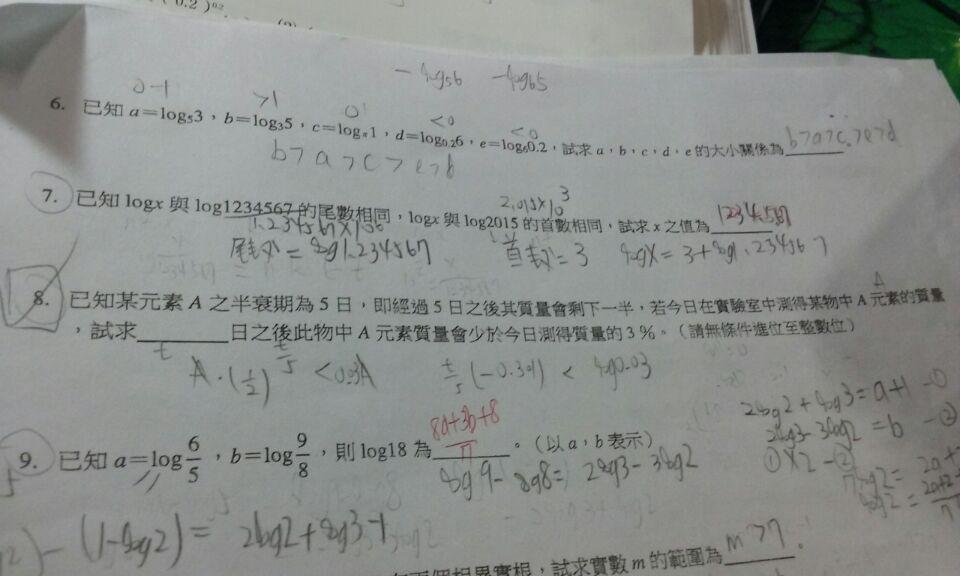 (0.2)^0.2
-log₅6 -log₆5
0-1 >1 0 <0 <0
6. 已知 a=log₅3，b=log₃5，c=logπ1，d=log₀.₂6，e=log₆0.2，試求 a、b、c、d、e 的大小關係為 b>a>c>e>d
b>a>c>e>b
7. 已知 logx 與 log1234567 的尾數相同，logx 與 log2015 的首數相同，試求 x 之值為 1234.567
2.015×10^3
1.234567×10^6
尾數=log1.234567 首數=3 logx=3+log1.234567
8. 已知某元素 A 之半衰期為 5 日，即經過 5 日之後其質量會剩下一半，若今日在實驗室中測得某物中 A 元素的質量
，試求 日之後此物中 A 元素質量會少於今日測得質量的 3 %。（請無條件進位至整數位）
t A
A·(1/2)^(t/5) <0.03A t/5(-0.301) < log0.03
9. 已知 a=log6/5，b=log9/8，則 log18 為 (8a+3b+8)/7 。（以 a，b 表示）
log9-log8= 2log3-3log2
2log2+log3=a+1 -①
2log3-3log2=b -②
①×2-②
7log2=
log2=
-(1-log2)= 2log2+log3-1
兩個相異實根，試求實數 m 的範圍為 m>7 。